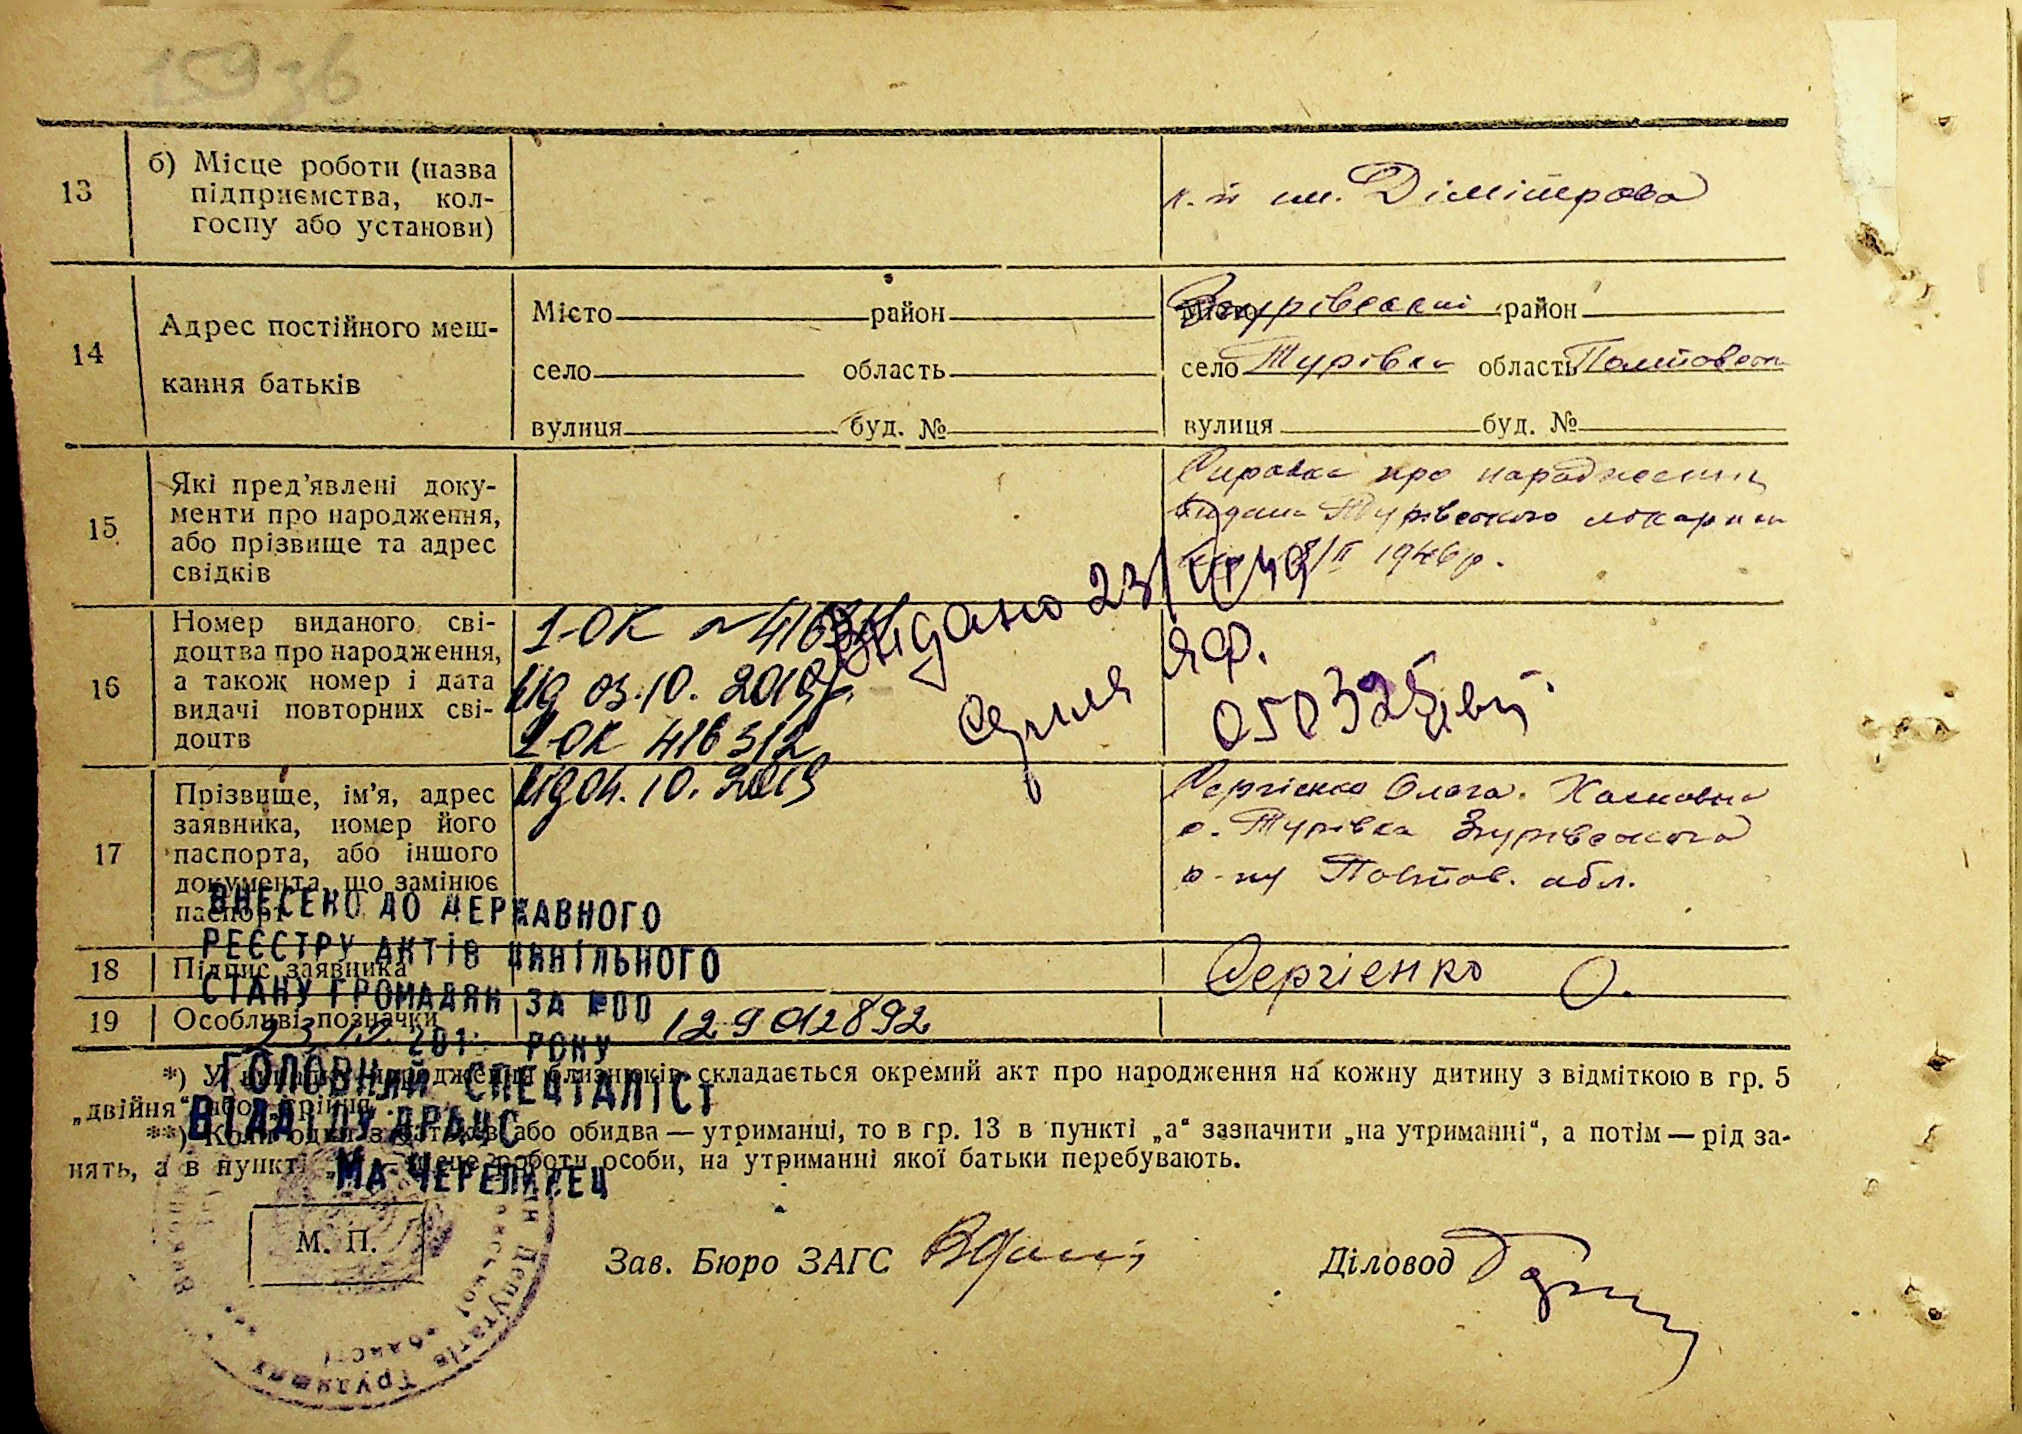 159зв
13
б) Місце роботи (назва
підприємства, кол-
госпу або установи)
к.п ім. Дімітрова
14
Адрес постійного меш-
кання батьків
Місто район
село область
вулиця буд. №
Місто Згурівський район
село Турівка область Полтавськ
вулиця буд. №
15
Які пред’явлені доку-
менти про народження,
або прізвище та адрес
свідків
Справка про народження
видана Турівською лікарнею
8/II 1946 р.
16
Номер виданого сві-
доцтва про народження,
а також номер і дата
видачі повторних сві-
доцтв
1-ОК №
від 03.10.2019р.
1-ОК 416312
від 04.10.2019
Видано 23/
ЯФ.
050325
17
Прізвище, ім’я, адрес
заявника, номер його
паспорта, або іншого
документа, що замінює
паспорт
Сергієнко Ольга
с. Турівка Згурівського
р-ну Полтав. обл.
18
Підпис заявника
Сергієнко О.
19
Особливі позначки
129012892
ВНЕСЕНО ДО ДЕРЖАВНОГО
РЕЄСТРУ АКТІВ ЦИВІЛЬНОГО
СТАНУ ГРОМАДЯН ЗА №00
201 РОКУ
ГОЛОВНИЙ СПЕЦІАЛІСТ
ВІДДІЛУ ДРАЦС
*) У народження близнюків складається окремий акт про народження на кожну дитину з відміткою в гр. 5
„двійня“ або „трійня“.
**) Коли один з батьків або обидва — утриманці, то в гр. 13 в пункті „а“ зазначити „на утриманні“, а потім — рід за-
нять, а в пункті місце роботи особи, на утриманні якої батьки перебувають.
М. П.
Зав. Бюро ЗАГС
Діловод
Депутатів Трудящих
області